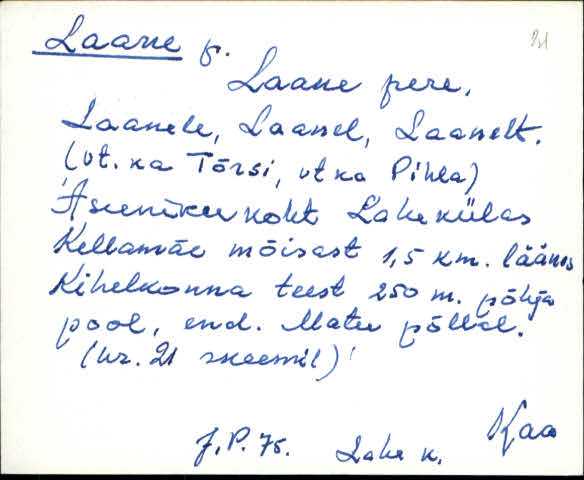 Laane p.
21
Laane pere,
Laanele, Laanel, Laanelt.
(vt. ka Tõrsi, vt ka Pihla)
Asuniku koht Lahekülas
Kellamäe mõisast 1,5 km. läänes
Kihelkonna teest 250 m. põhja
pool, end. Matu põllul.
(nr. 21 skeemil)
J.P. 75. Lahe k. Kaa